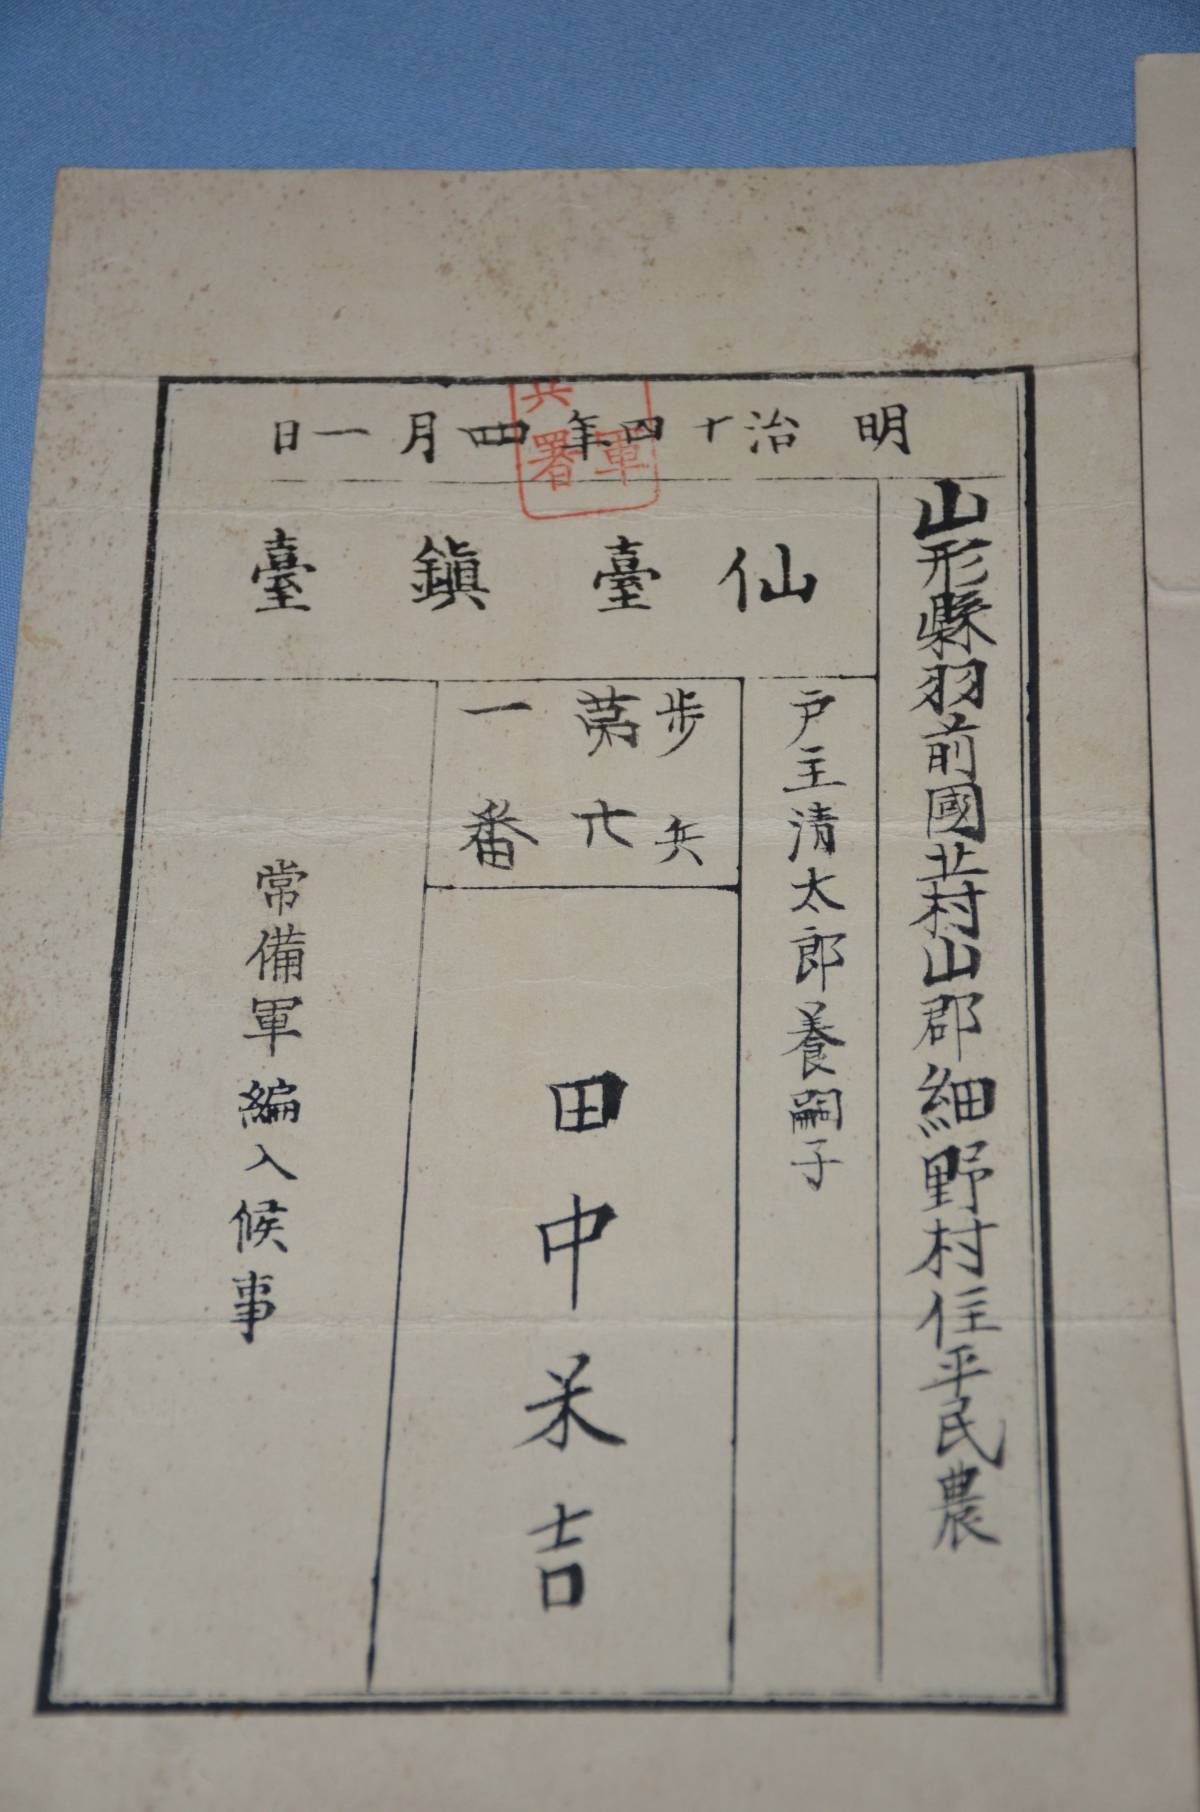 明治十四年四月一日
山形縣羽前國北村山郡細野村住平民農
仙臺鎮臺
戸主清太郎養嗣子
歩兵
第六
一番
田中米吉
常備軍編入候事
兵
軍
署